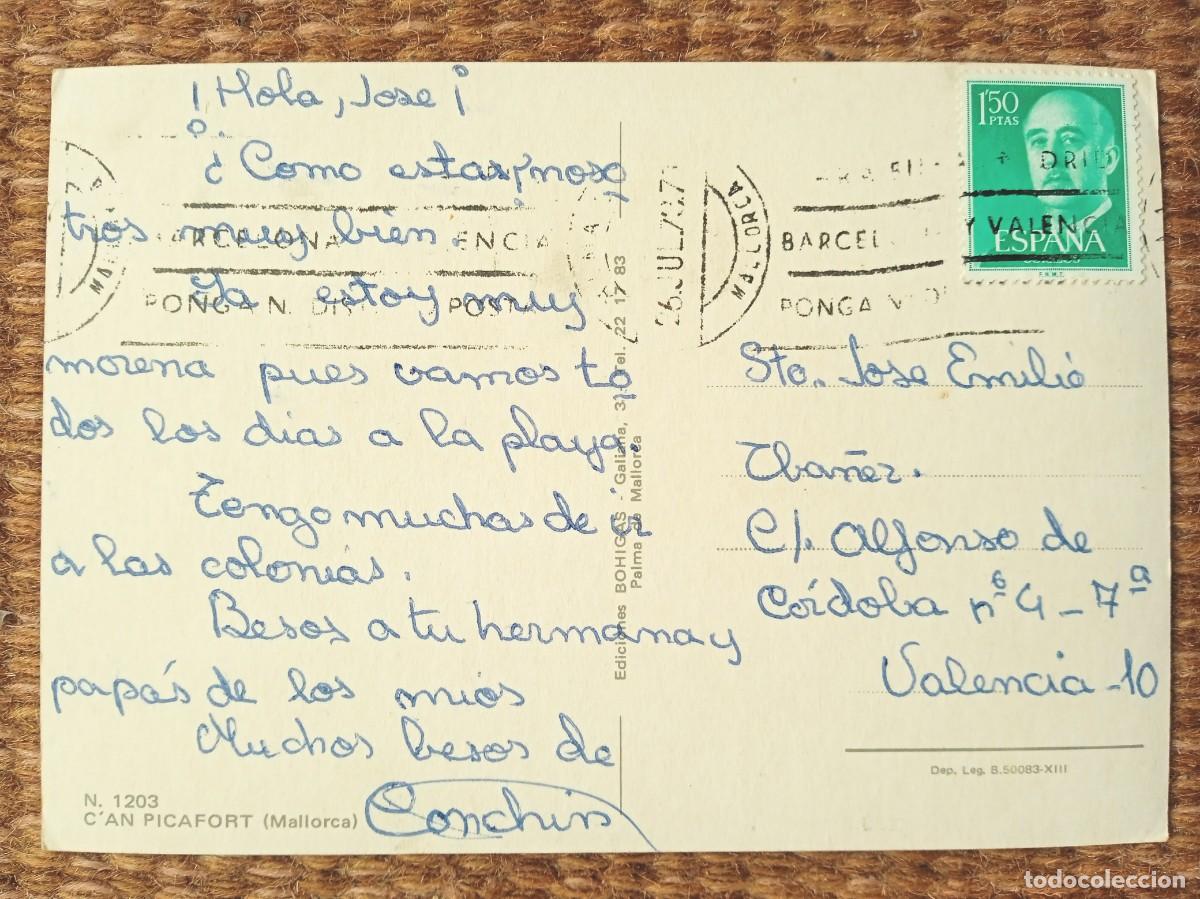 ¡Hola, Jose¡
¿Como estas? noso
tros muy bien.
Ya estoy muy
morena pues vamos to
dos los dias a la playa.
Tengo muchas de ir
a las colonias.
Besos a tu hermana y
papás de los mios
Muchos besos de
Conchin
N. 1203
C'AN PICAFORT (Mallorca)
Ediciones BOHIGAS - Galiana, Tel. 22 17 83
Palma de Mallorca
1'50
PTAS
ESPAÑA
F.N.M.T.
BARCELONA
PONGA
MALLORCA
26 JUL
BARCEL Y VALENCIA
PONGA
Sto. Jose Emilio
Ibañez.
C/. Alfonso de
Córdoba nº 4 - 7ª
Valencia - 10
Dep. Leg. B.50083-XIII
todocoleccion